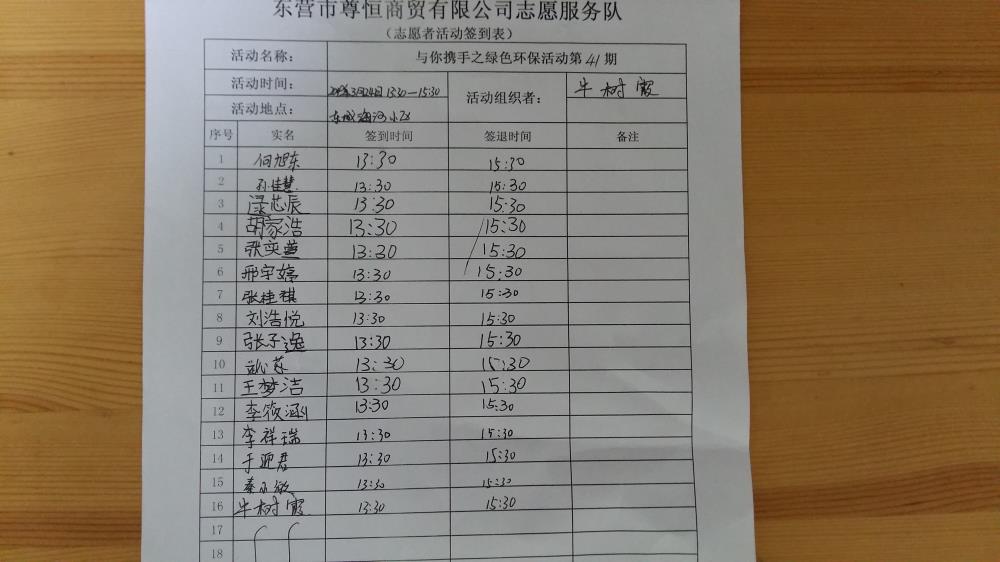 东营市尊恒商贸有限公司志愿服务队
（志愿者活动签到表）
活动名称： 与你携手之绿色环保活动第41期
活动时间： 3月24日 13:30—15:30 活动组织者： 牛树霞
活动地点： 东城 小区
序号 实名 签到时间 签退时间 备注
1 何旭东 13:30 15:30
2 孙佳慧 13:30 15:30
3 芯辰 13:30 15:30
4 胡家浩 13:30 15:30
5 张奕萱 13:30 15:30
6 邢宇婷 13:30 15:30
7 张桂祺 13:30 15:30
8 刘浩悦 13:30 15:30
9 张子逸 13:30 15:30
10 13:30 15:30
11 王梦洁 13:30 15:30
12 李筱涵 13:30 15:30
13 李祥瑞 13:30 15:30
14 于迎君 13:30 15:30
15 秦小敏 13:30 15:30
16 牛树霞 13:30 15:30
17
18